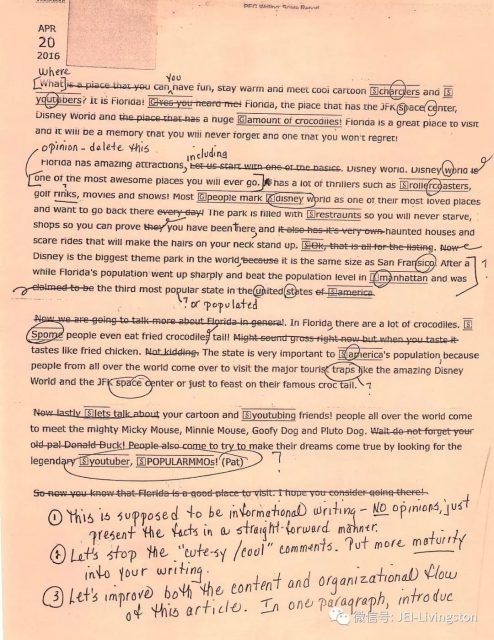 PEG Writing Score Report
APR
20
2016
where
you
What is a place that you can have fun, stay warm and meet cool cartoon S charcters and S
youtubers? It is Florida! G yes you heard me! Florida, the place that has the JFK Space center,
Disney World and the place that has a huge G amount of crocodiles! Florida is a great place to visit
and it will be a memory that you will never forget and one that you won't regret!
opinion - delete this
including
Florida has amazing attractions, Let us start with one of the basics. Disney World. Disney world is
one of the most awesome places you will ever go. It has a lot of thrillers such as S rollercoasters,
golf rinks, movies and snows! Most G people mark S disney world as one of their most loved places
and want to go back there every day! The park is filled with S restraunts so you will never starve,
shops so you can prove they you have been there and it also has it's very own haunted houses and
scare rides that will make the hairs on your neck stand up. S Ok, that is all for the listing. Now
Disney is the biggest theme park in the world because it is the same size as San Fransico. After a
while Florida's population went up sharply and beat the population level in S manhattan and was
claimed to be the third most popular state in the united states of S america.
? or populated
Now we are going to talk more about Florida in general. In Florida there are a lot of crocodiles. S
Spome people even eat fried crocodiles tail! Might sound gross right now but when you taste it
tastes like fried chicken. Not kidding. The state is very important to S america's population because
people from all over the world come over to visit the major tourist traps like the amazing Disney
World and the JFK space center or just to feast on their famous croc tail. ?
Now lastly S lets talk about your cartoon and S youtubing friends! people all over the world come
to meet the mighty Micky Mouse, Minnie Mouse, Goofy Dog and Pluto Dog. Wait do not forget your
old pal Donald Duck! People also come to try to make their dreams come true by looking for the
legendary S youtuber, S POPULARMMOs! (Pat) ?
So now you know that Florida is a good place to visit. I hope you consider going there!
① This is supposed to be informational writing - NO opinions, just
present the facts in a straight-forward manner.
② Let's stop the "cute-sy / cool" comments. Put more maturity
into your writing.
③ Let's improve both the content and organizational flow
of this article. In one paragraph, introduc
微信号: JEI-Livingston